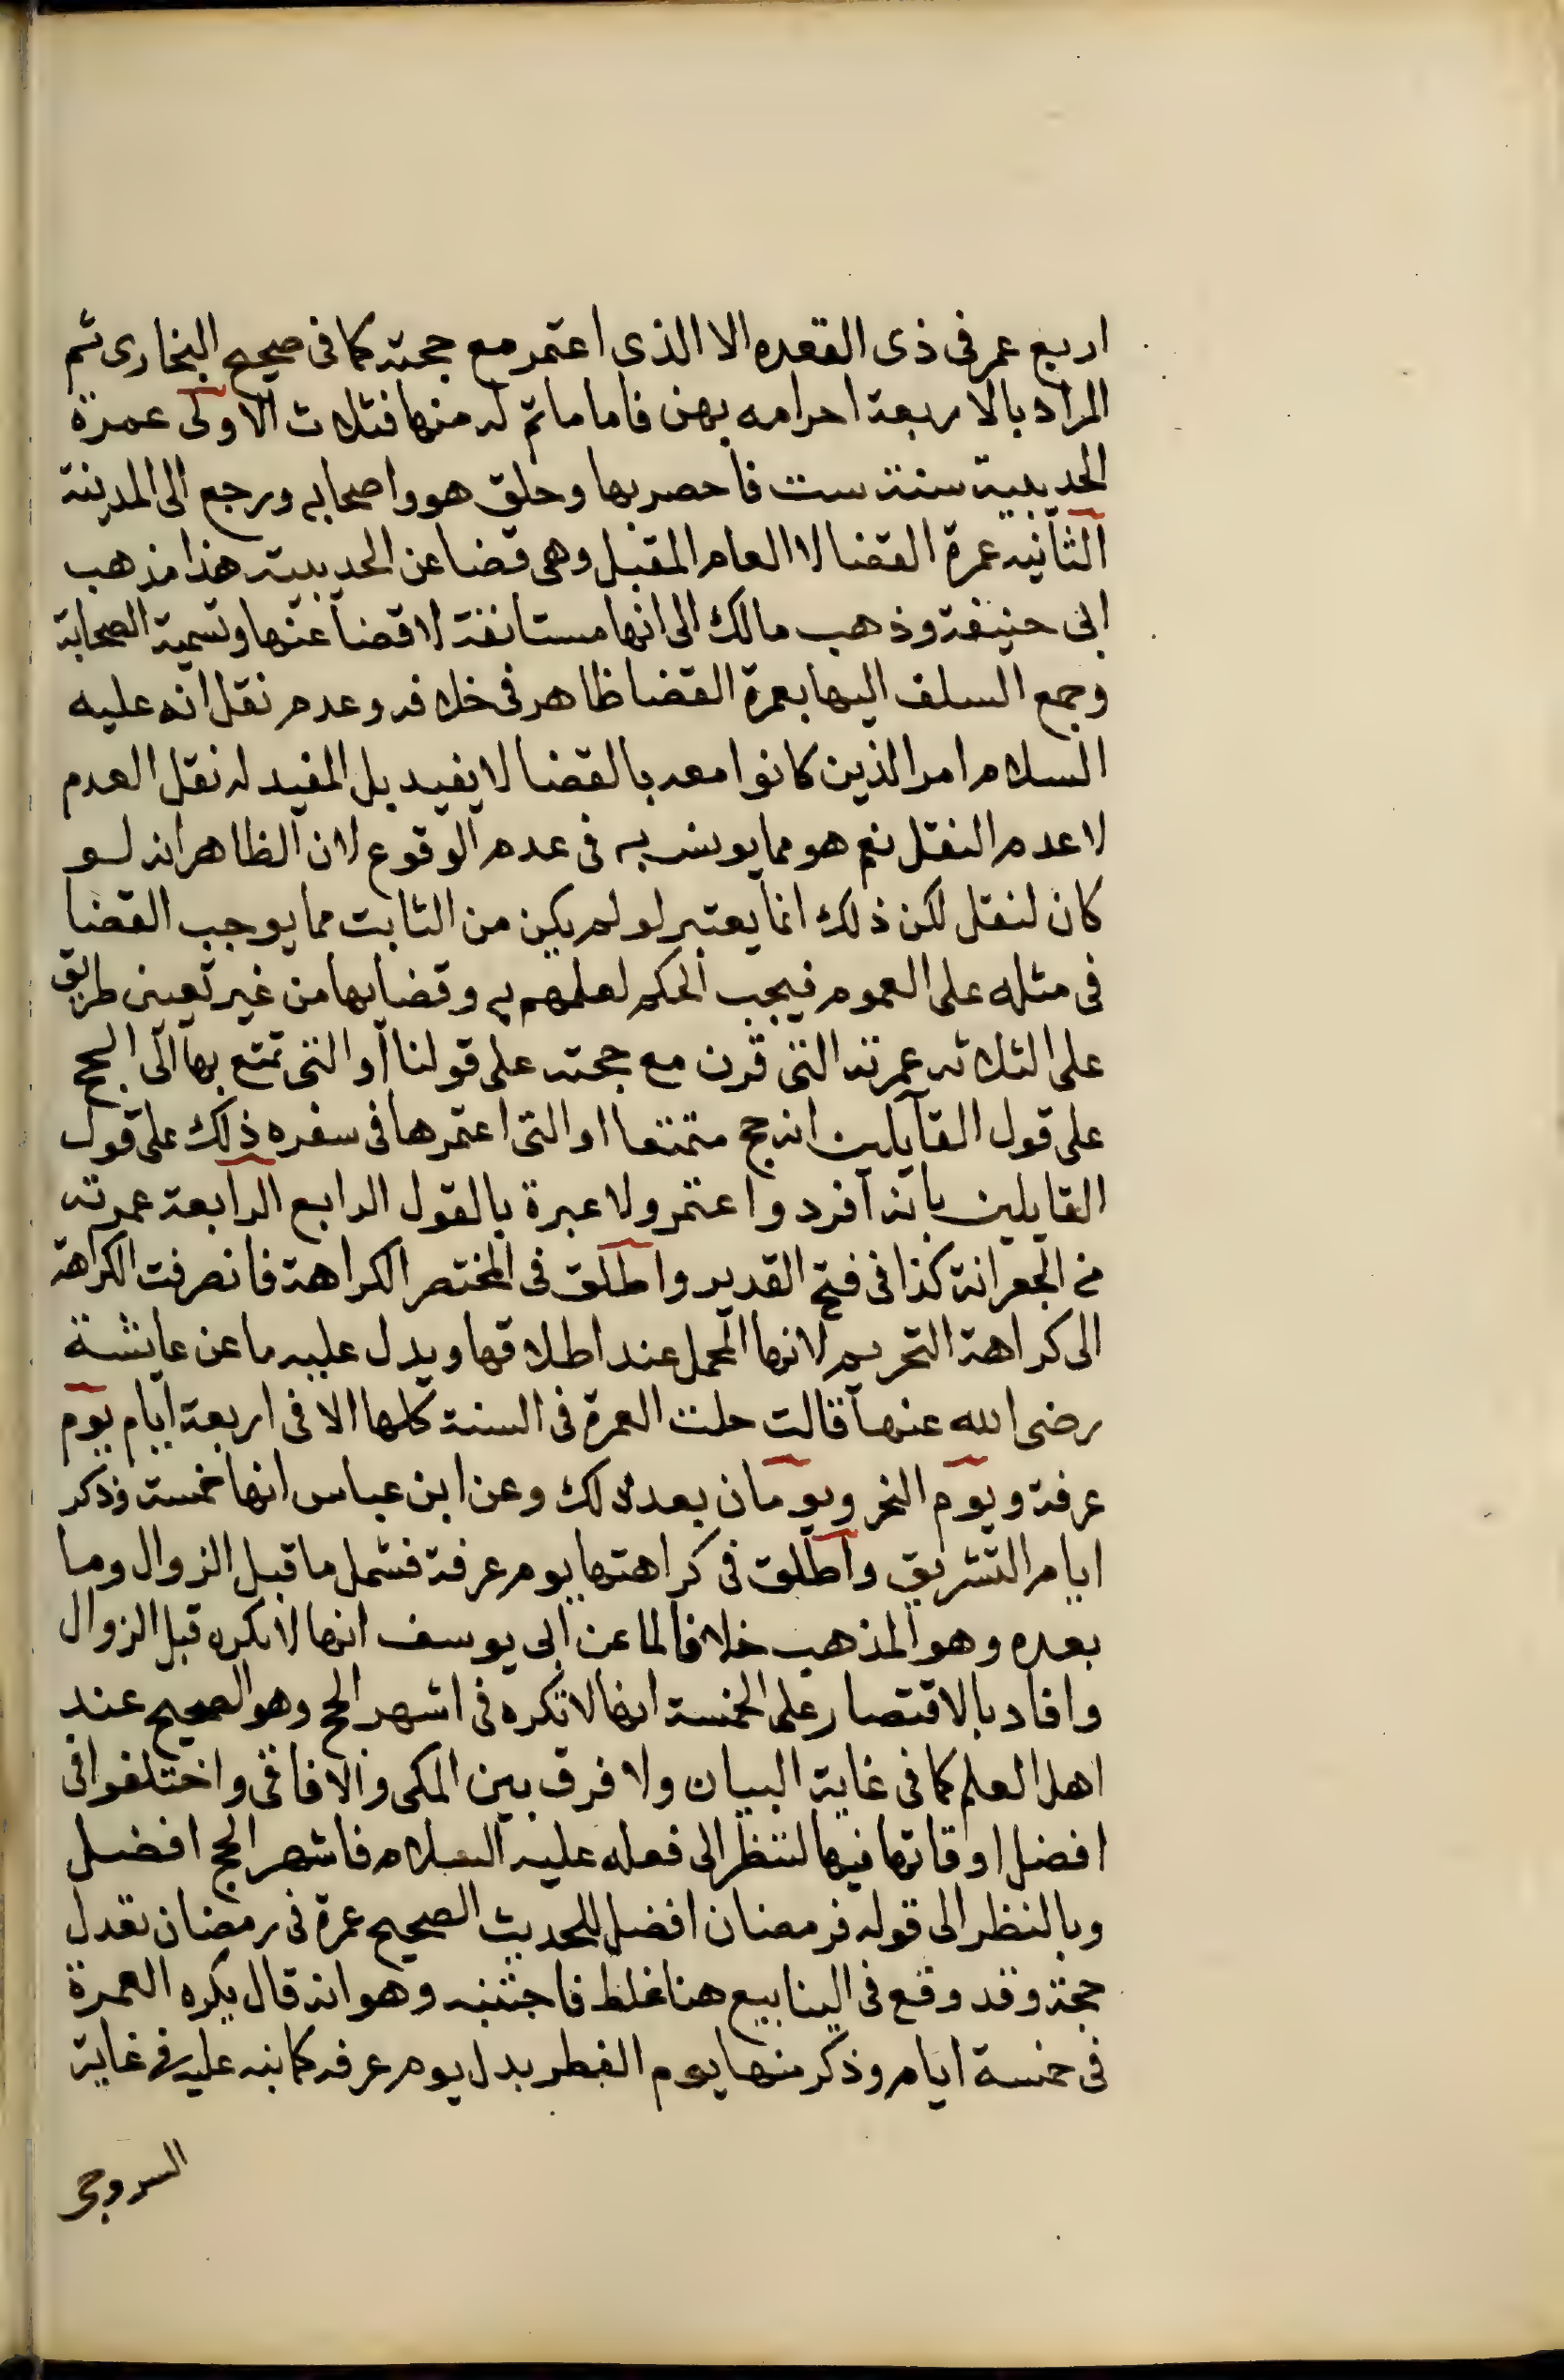 اربع عمر فى ذى القعده الا الذى اعتمر مع حجته كما فى صحيح البخارى ثم
المراد بالاربعة احرامه بهن فاما ما تم له منها فثلاث الاولى عمرة
الحديبية سنة ست فاحصر بها وحلق هو واصحابه ورجع الى المدينة
الثانيه عمرة القضا لا العام المقبل وهى قضا عن الحديبية هذا مذهب
ابى حنيفة وذهب مالك الى انها مستانفة لا قضا عنها وتسمية الصحابة
وجمع السلف اليها بعمرة القضا ظاهر فى خلافه وعدم نقل انه عليه
السلام امر الذين كانوا معه بالقضا لا يفيد بل المفيد له نقل العدم
لا عدم النقل نعم هو مما يونس به فى عدم الوقوع لان الظاهر انه لو
كان لنقل لكن ذلك انما يعتبر لو لم يكن من الثابت مما يوجب القضا
فى مثله على العموم فيجب الحكم لعلمهم به وقضايها من غير تعيين طريق
على الثلاثه عمرته التى قرن مع حجته على قولنا او التى تمتع بها الى الحج
على قول القايلين انه حج متمتعا او التى اعتمرها فى سفره ذلك على قول
القايلين بانه افرد واعتمر ولا عبرة بالقول الرابع الرابعة عمرته
من الجعرانة كذا فى فتح القدير واطلق فى المختصر الكراهة فانصرفت الكراهة
الى كراهة التحريم لانها المحمل عند اطلاقها ويدل عليه ما عن عايشة
رضى الله عنها قالت حلت العمرة فى السنة كلها الا فى اربعة ايام يوم
عرفة ويوم النحر ويومان بعد ذلك وعن ابن عباس انها خمسة وذكر
ايام التشريق واطلق فى كراهتها يوم عرفة فشمل ما قبل الزوال وما
بعده وهو المذهب خلافا لما عن ابى يوسف انها لا تكره قبل الزوال
وافاد بالاقتصار على الخمسة انها لا تكره فى اشهر الحج وهو الصحيح عند
اهل العلم كما فى غاية البيان ولا فرق بين المكى والافاقى واختلفوا فى
افضل اوقاتها فبها لنظر الى فعله عليه السلام فاشهر الحج افضل
وبالنظر الى قوله فرمضان افضل للحديث الصحيح عمرة فى رمضان تعدل
حجة وقد وقع فى الينابيع هنا غلط فاجتنبه وهو انه قال يكره العمرة
فى خمسة ايام وذكر منها يوم الفطر بدل يوم عرفه كما نبه عليه فى غاية
السروجى